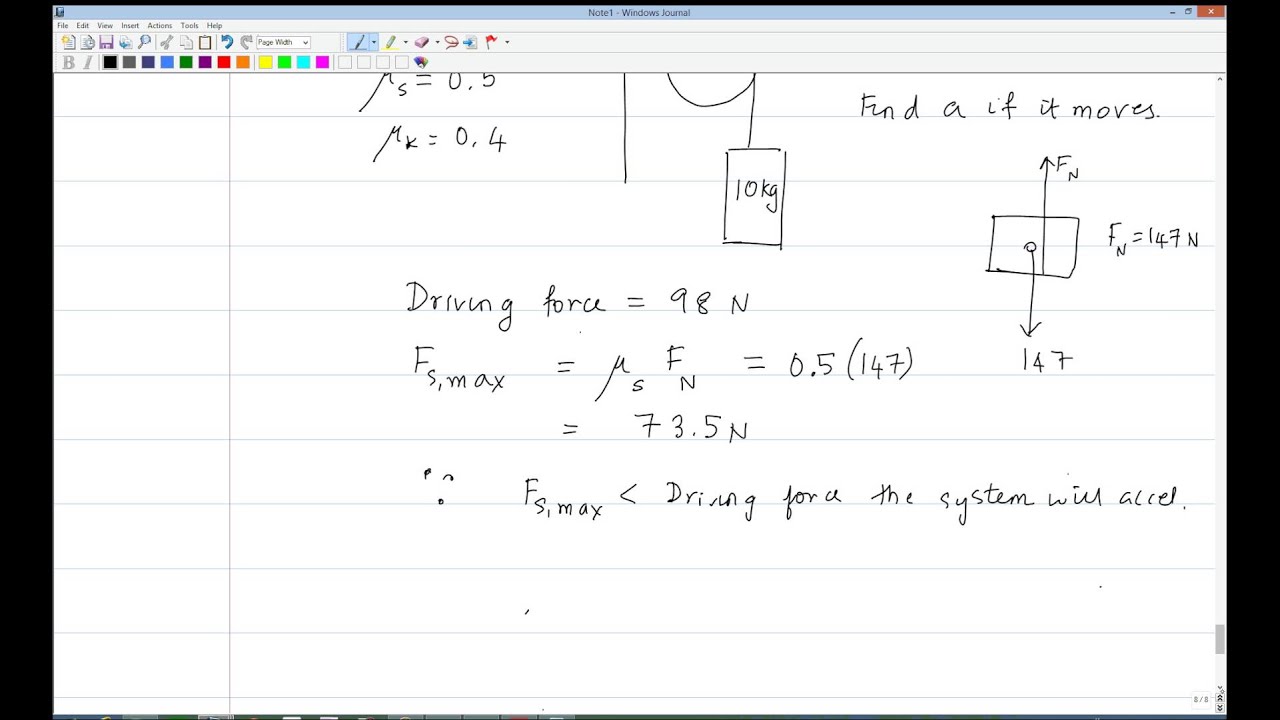 Note1 - Windows Journal
File Edit View Insert Actions Tools Help
Page Width
B I
μs = 0.5
Find a if it moves.
μk = 0.4
FN
10kg
FN = 147 N
Driving force = 98 N
147
Fs,max = μs FN = 0.5(147)
= 73.5 N
∵ Fs,max < Driving force the system will accel.
8/8